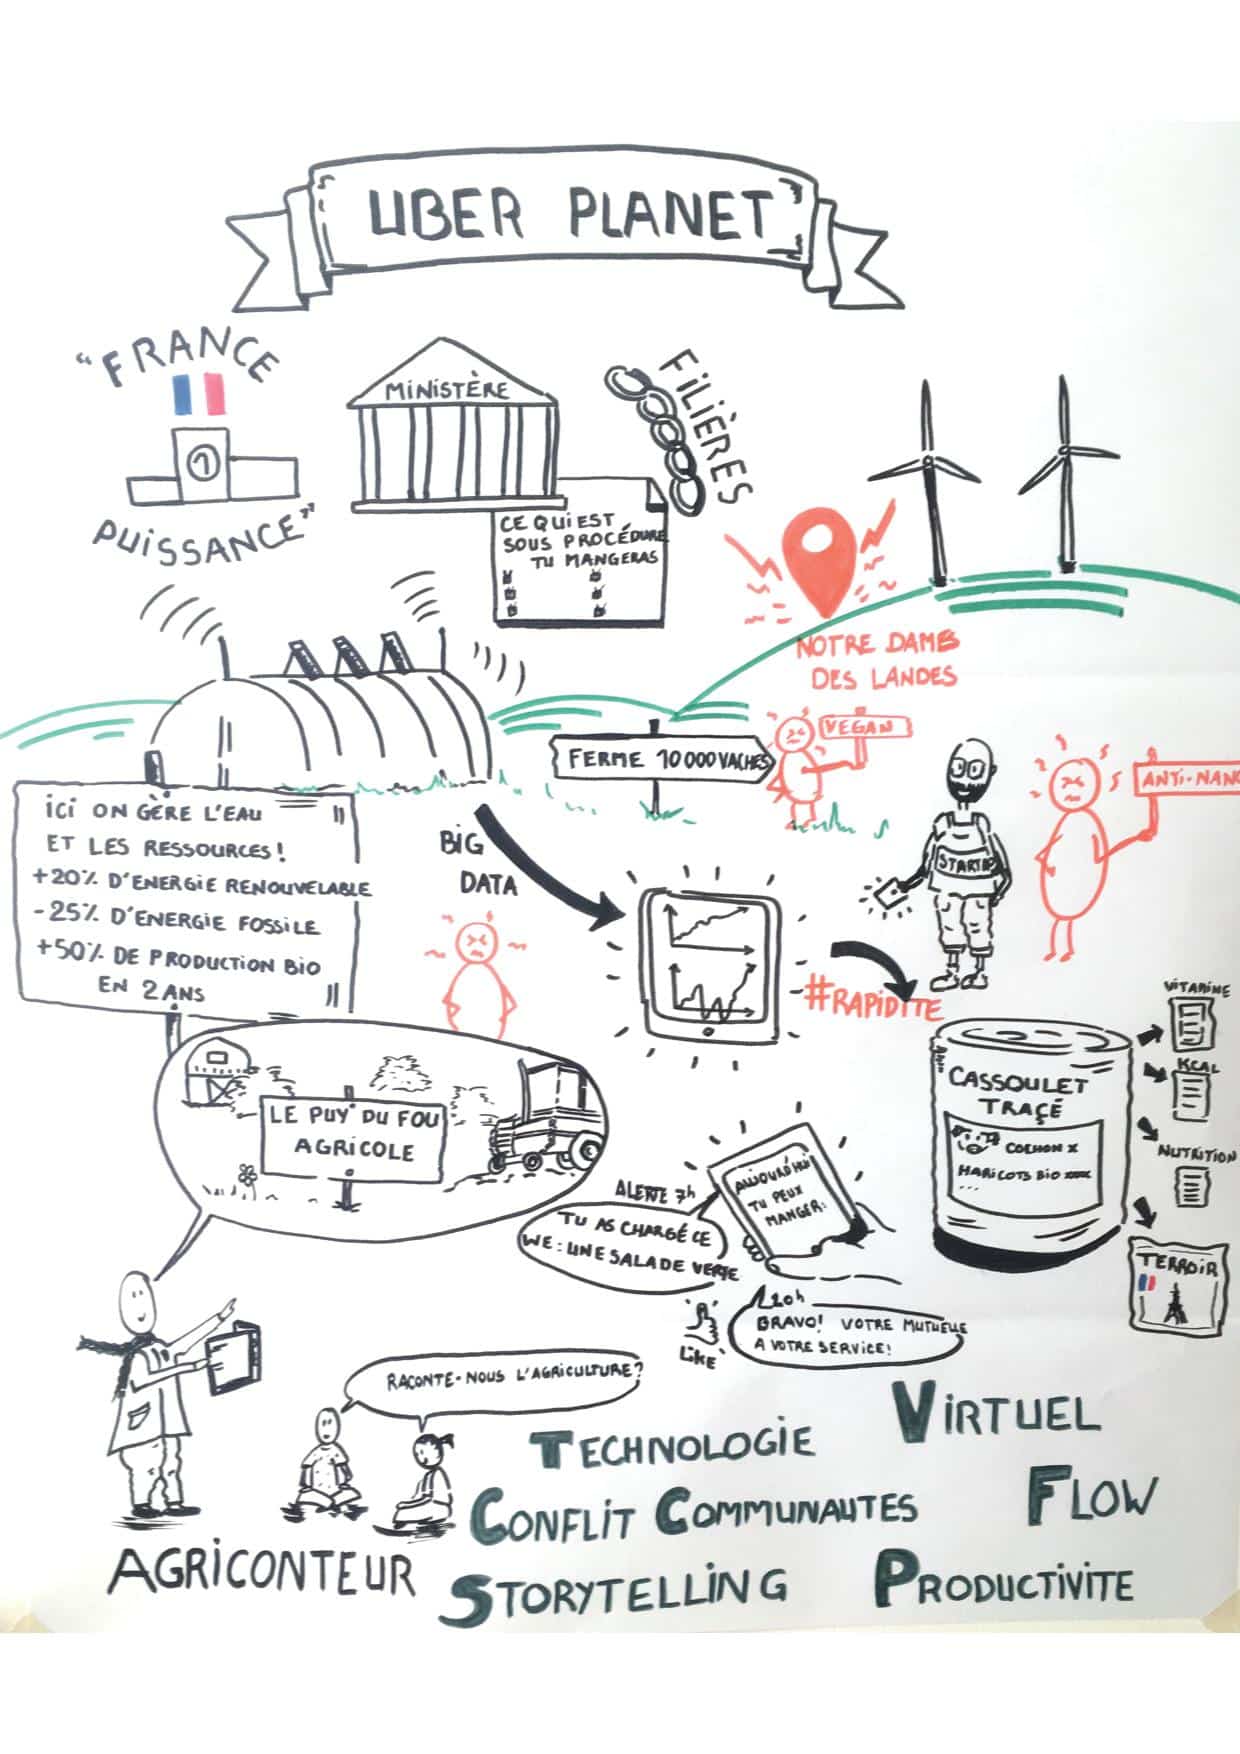 UBER PLANET
"FRANCE
1
PUISSANCE"
MINISTÈRE
FILIÈRES
CE QUI EST
SOUS PROCÉDURE
TU MANGERAS
NOTRE DAMES
DES LANDES
FERME 10000 VACHES
VEGAN
STARTUP
ANTI-NANO
ICI ON GÈRE L'EAU
ET LES RESSOURCES!
+20% D'ENERGIE RENOUVELABLE
-25% D'ENERGIE FOSSILE
+50% DE PRODUCTION BIO
EN 2 ANS
BIG
DATA
#RAPIDITE
CASSOULET
TRAÇÉ
COCHON X
HARICOTS BIO XXXX
...
VITAMINE
KCAL
NUTRITION
TERROIR
LE PUY DU FOU
AGRICOLE
ALERTE 7h
TU AS CHARGÉ CE
WE: UNE SALADE VERTE
AUJOURD'HUI
TU PEUX
MANGER:
20h
BRAVO! VOTRE MUTUELLE
A VOTRE SERVICE!
LIKE
RACONTE-NOUS L'AGRICULTURE?
AGRICONTEUR
TECHNOLOGIE
VIRTUEL
CONFLIT COMMUNAUTES
FLOW
STORYTELLING
PRODUCTIVITE